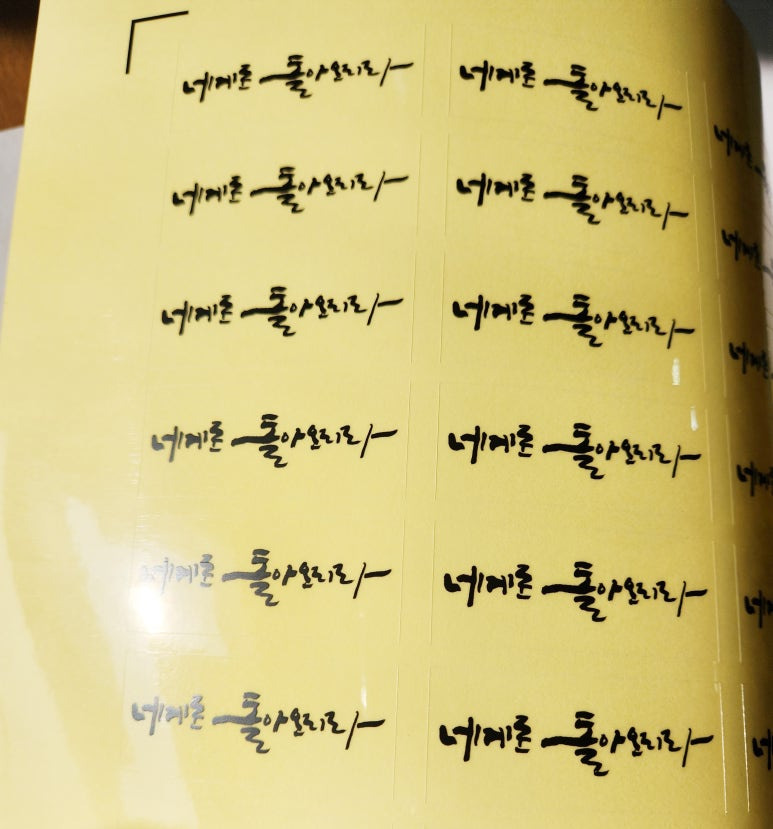 네게로 돌아오리라
네게로 돌아오리라
네게로 돌아오리라
네게로 돌아오리라
네게로 돌아오리라
네게로 돌아오리라
네게로 돌아오리라
네게로 돌아오리라
네게로 돌아오리라
네게로 돌아오리라
네게로 돌아오리라
네게로 돌아오리라